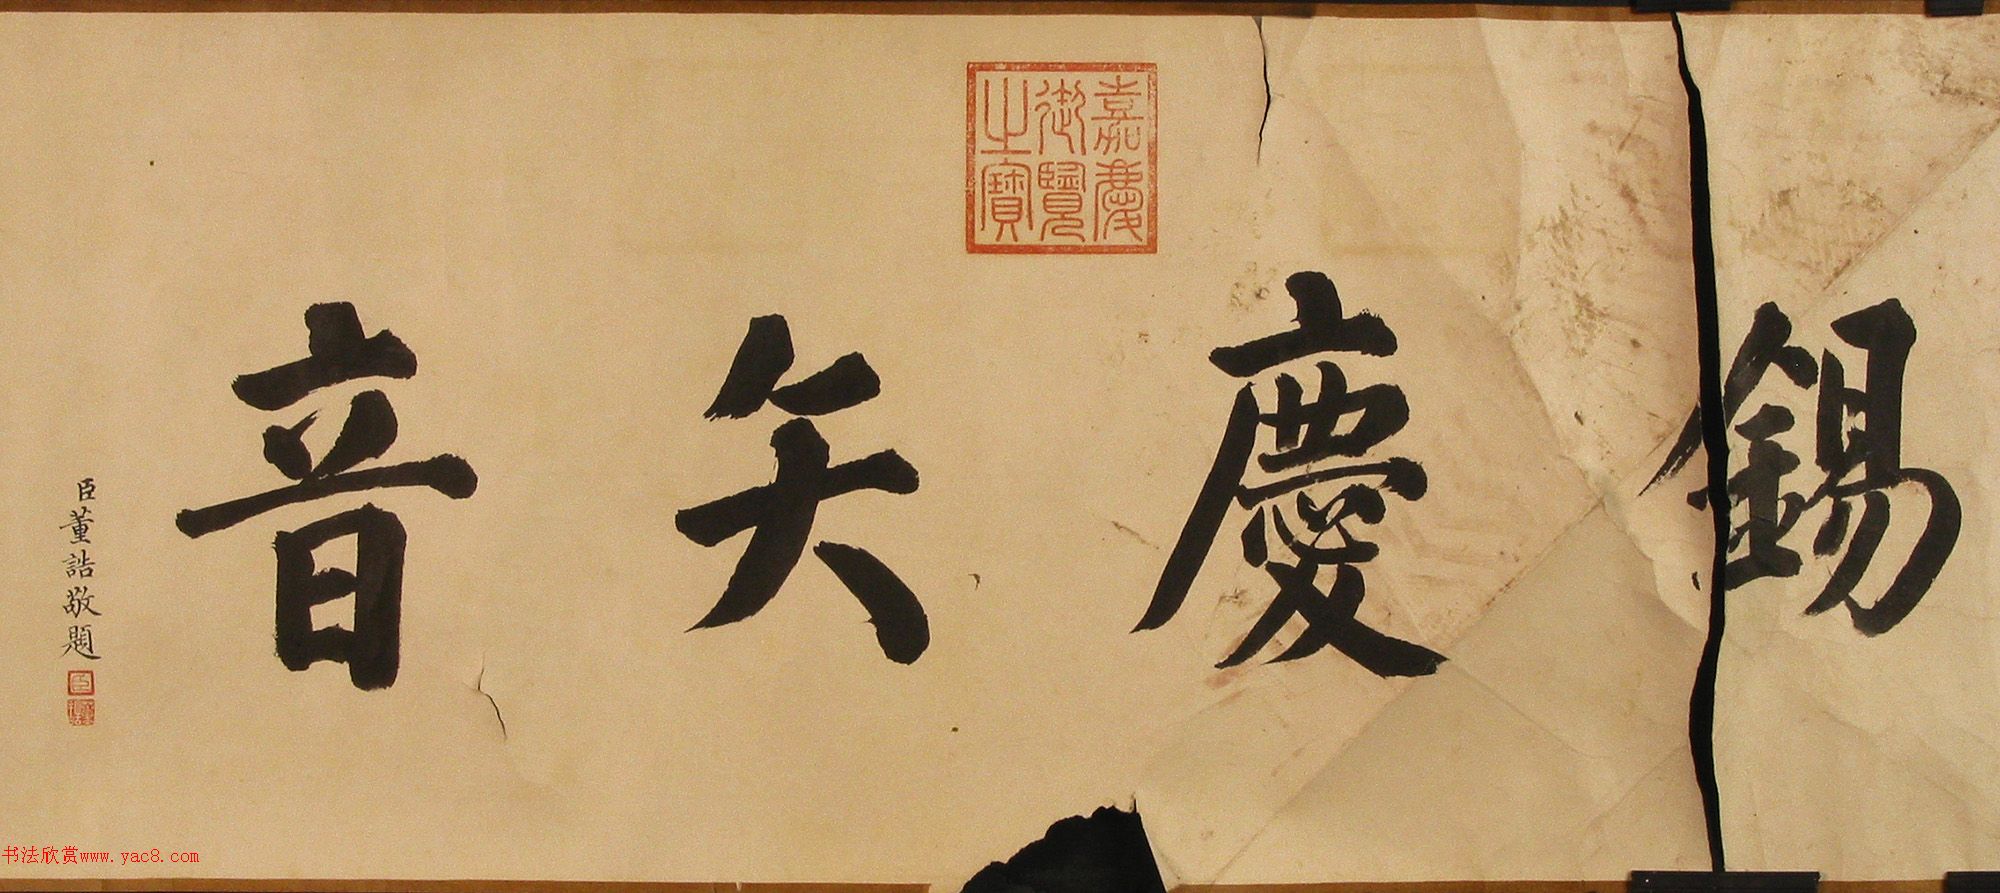 錫慶矢音
嘉慶
御覽
之寶
臣董誥敬題
臣
书法欣赏www.yac8.com